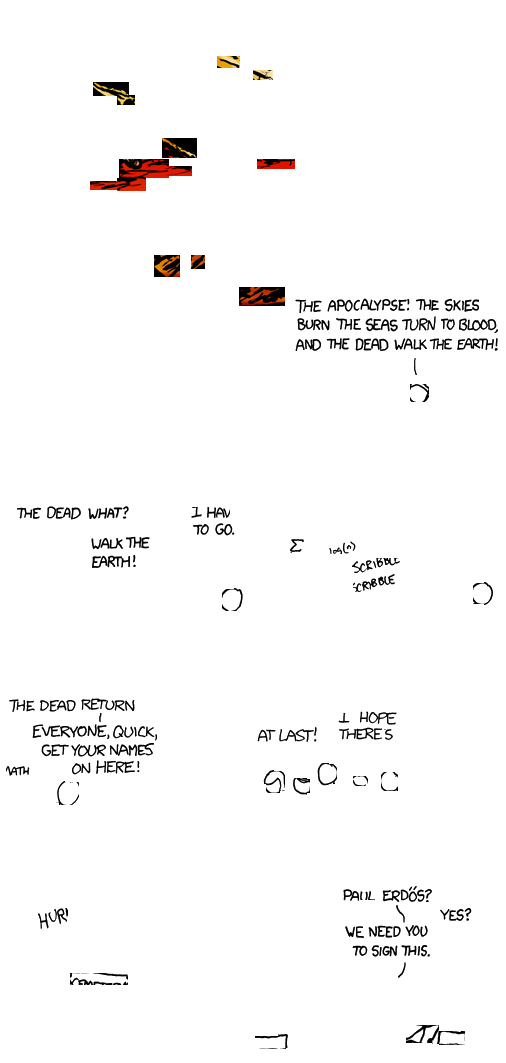 THE APOCALYPSE! THE SKIES
BURN THE SEAS TURN TO BLOOD,
AND THE DEAD WALK THE EARTH!
THE DEAD WHAT?
WALK THE
EARTH!
I HAV
TO GO.
Σ
log(n)
SCRIBBLE
SCRIBBLE
THE DEAD RETURN
EVERYONE, QUICK,
GET YOUR NAMES
ON HERE!
MATH
AT LAST!
I HOPE
THERES
PAUL ERDŐS?
YES?
WE NEED YOU
TO SIGN THIS.